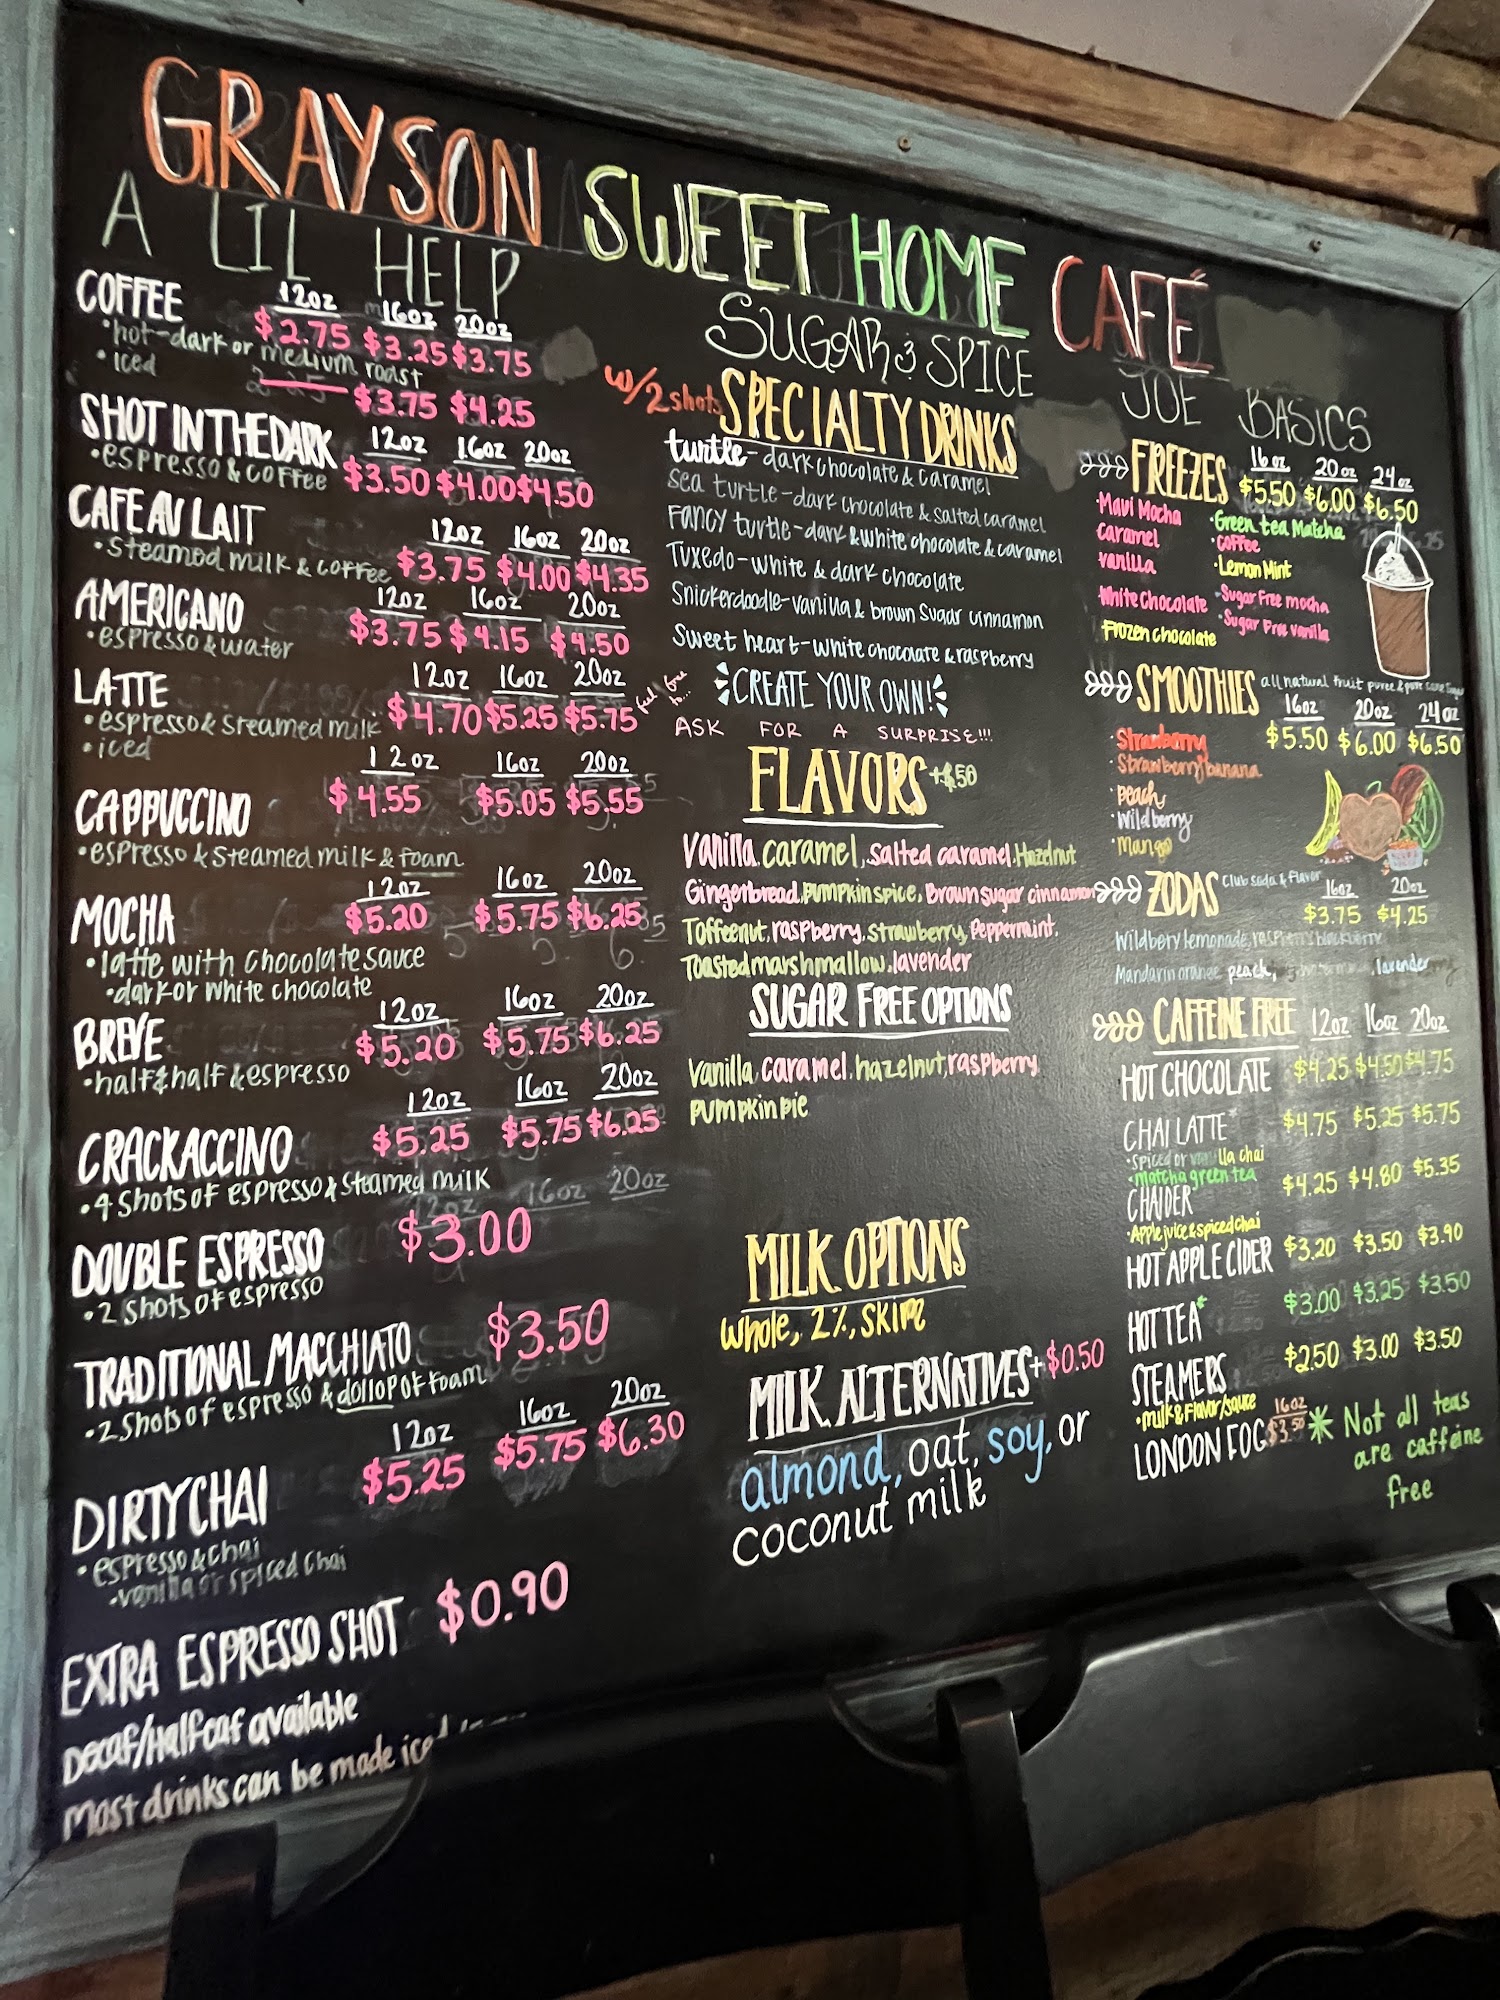 GRAYSON SWEET HOME CAFÉ
A LIL HELP
COFFEE 12oz 16oz 20oz
$2.75 $3.25 $3.75
•hot-dark or medium roast
•iced $3.75 $4.25
SHOT IN THE DARK 12oz 16oz 20oz
•espresso & coffee $3.50 $4.00 $4.50
CAFE AU LAIT 12oz 16oz 20oz
•Steamed milk & coffee $3.75 $4.00 $4.35
AMERICANO 12oz 16oz 20oz
•espresso & water $3.75 $4.15 $4.50
LATTE 12oz 16oz 20oz
•espresso & steamed milk $4.70 $5.25 $5.75
•iced
12oz 16oz 20oz
CAPPUCCINO $4.55 $5.05 $5.55
•espresso & steamed milk & foam
12oz 16oz 20oz
MOCHA $5.20 $5.75 $6.25
•latte with chocolate sauce
•dark or white chocolate
12oz 16oz 20oz
BREVE $5.20 $5.75 $6.25
•half & half & espresso
12oz 16oz 20oz
CRACKACCINO $5.25 $5.75 $6.25
•4 shots of espresso & steamed milk
12oz 16oz 20oz
DOUBLE ESPRESSO $3.00
•2 shots of espresso
TRADITIONAL MACCHIATO $3.50
•2 shots of espresso & dollop of foam
12oz 16oz 20oz
DIRTY CHAI $5.25 $5.75 $6.30
•espresso & chai
-vanilla or spiced chai
EXTRA ESPRESSO SHOT $0.90
Decaf/Halfcaf available
Most drinks can be made iced
SUGAR & SPICE
w/2 shots SPECIALTY DRINKS
turtle-dark chocolate & caramel
sea turtle-dark chocolate & salted caramel
FANCY turtle-dark & white chocolate & caramel
Tuxedo-white & dark chocolate
Snickerdoodle-vanilla & brown sugar cinnamon
Sweet heart-white chocolate & raspberry
feel free to...
CREATE YOUR OWN!
ASK FOR A SURPRISE!!!
FLAVORS +$50
Vanilla, caramel, salted caramel, Hazelnut
Gingerbread, pumpkin spice, Brown sugar cinnamon
Toffeenut, raspberry, strawberry, Peppermint,
Toasted marshmallow, lavender
SUGAR FREE OPTIONS
Vanilla, caramel, hazelnut, raspberry
pumpkin pie
MILK OPTIONS
Whole, 2%, SKIM
MILK ALTERNATIVES +$0.50
almond, oat, soy, or
coconut milk
JOE BASICS
FREEZES 16oz 20oz 24oz
$5.50 $6.00 $6.50
•Maui Mocha •Green tea Matcha
caramel •coffee
vanilla •Lemon Mint
White Chocolate •Sugar Free mocha
Frozen chocolate •Sugar Free vanilla
SMOOTHIES all natural fruit puree & pure cane sugar
16oz 20oz 24oz
$5.50 $6.00 $6.50
•Strawberry
•Strawberry banana
•peach
•Wildberry
•Mango
ZODAS Club soda & flavor
16oz 20oz
$3.75 $4.25
Wildbery lemonade, raspberry blackberry
Mandarin orange peach, lavender
CAFFEINE FREE 12oz 16oz 20oz
HOT CHOCOLATE $4.25 $4.50 $4.75
CHAI LATTE* $4.75 $5.25 $5.75
•spiced or vanilla chai
•matcha green tea
CHAIDER* $4.25 $4.80 $5.35
•Apple juice & spiced chai
HOT APPLE CIDER $3.20 $3.50 $3.90
HOT TEA* $3.00 $3.25 $3.50
STEAMERS $2.50 $3.00 $3.50
•milk & Flavor/sauce
LONDON FOG 16oz $3.50
* Not all teas
are caffeine
free